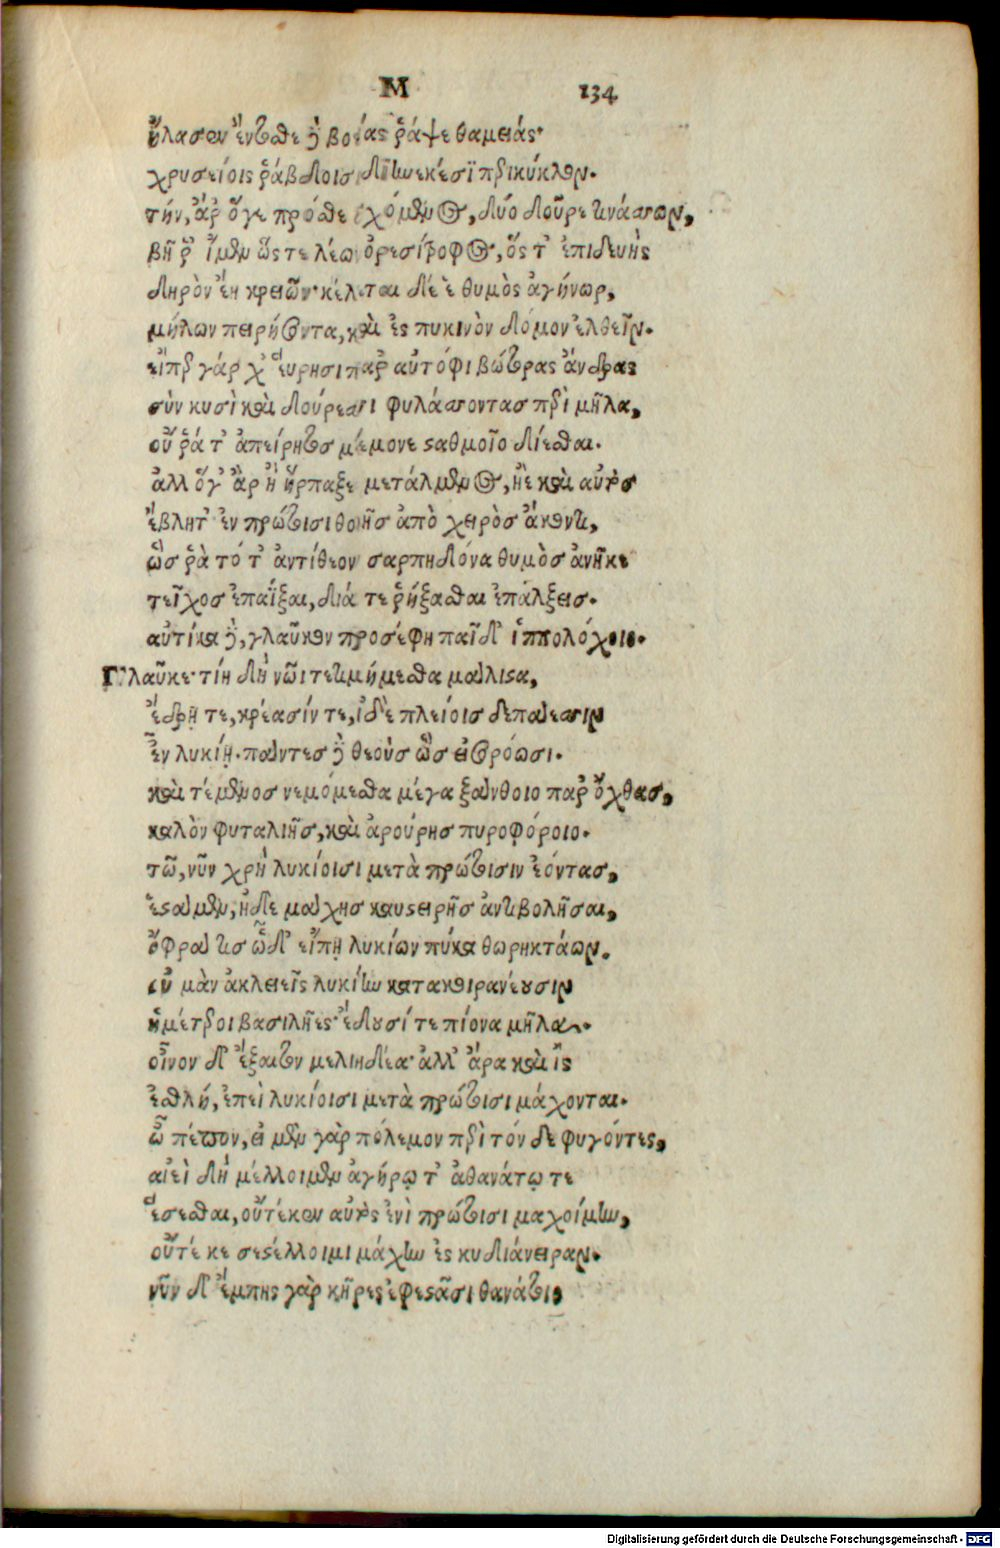 Μ 134
ἤλασεν ἔντοσθε δὲ βοείας ῥάψε θαμειάς·
χρυσείοις ῥάβδοισι διηνεκέσϊ περικύκλον.
τήν, ἄρ ὅγε πρόσθε σχόμενος, δύο δοῦρε τινάσσων,
βῆ ῥ' ἴμεν ὥς τε λέων ὀρεσίτροφος, ὅς τ' ἐπιδευὴς
δηρὸν ἔη κρειῶν· κέλεται δέ ἑ θυμὸς ἀγήνωρ,
μήλων πειρήσοντα, καὶ ἐς πυκινὸν δόμον ἐλθεῖν.
εἴπερ γάρ χ' εὕρησι παρ' αὐτόφι βώτορας ἄνδρας
σὺν κυσὶ καὶ δούρεσσι φυλάσσοντας περὶ μῆλα,
οὔ ῥά τ' ἀπείρητος μέμονε σταθμοῖο δίεσθαι.
ἀλλ ὅγ' ἂρ ἢ ἥρπαξε μετάλμενος, ἠὲ καὶ αὐτὸς
ἔβλητ' ἐν πρώτοισι θοῆς ἀπὸ χειρὸς ἄκοντι,
ὣς ῥὰ τό τ' ἀντίθεον σαρπηδόνα θυμὸς ἀνῆκε
τεῖχος ἐπαΐξαι, διά τε ῥήξασθαι ἐπάλξεις.
αὐτίκα δὲ, γλαῦκον προσέφη παῖδ' ἱππολόχοιο.
Γλαῦκε· τίη δὴ νῶι τετιμήμεσθα μάλιστα,
ἕδρῃ τε, κρέασίν τε, ἰδὲ πλείοις δεπάεσσιν
ἐν λυκίῃ. πάντες δὲ θεοὺς ὣς εἰσορόωσι.
καὶ τέμενος νεμόμεσθα μέγα ξάνθοιο παρ' ὄχθας,
καλὸν φυταλιῆς, καὶ ἀρούρης πυροφόροιο.
τῶ, νῦν χρὴ λυκίοισι μετὰ πρώτοισιν ἐόντας,
ἑστάμεν, ἠδὲ μάχης καυστειρῆς ἀντιβολῆσαι,
ὄφρά τις ὧδ' εἴπῃ λυκίων πύκα θωρηκτάων.
οὐ μὰν ἀκλεεῖς λυκίην κατακοιρανέουσιν
ἡμέτεροι βασιλῆες· ἔδουσί τε πίονα μῆλα.
οἶνον δ' ἔξαιτον μελιηδέα· ἀλλ' ἄρα καὶ ἲς
ἐσθλή, ἐπεὶ λυκίοισι μετὰ πρώτοισι μάχονται.
ὦ πέπον, εἰ μὲν γὰρ πόλεμον περὶ τόν δε φυγόντες,
αἰεὶ δὴ μέλλοιμεν ἀγήρῳ τ' ἀθανάτῳ τε
ἔσεσθαι, οὔτέ κεν αὐτὸς ἐνὶ πρώτοισι μαχοίμην,
οὔτέ κε σε στέλλοιμι μάχην ἐς κυδιάνειραν.
νῦν δ' ἔμπης γὰρ κῆρες ἐφεστᾶσι θανάτοιο
Digitalisierung gefördert durch die Deutsche Forschungsgemeinschaft - DFG